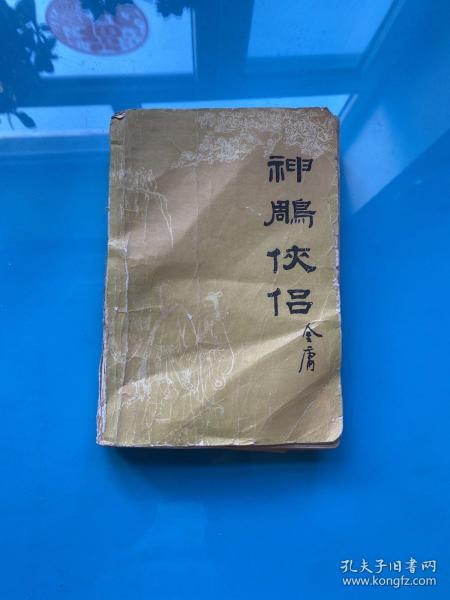 神鵰俠侣
金庸
孔夫子旧书网
www.kongfz.com